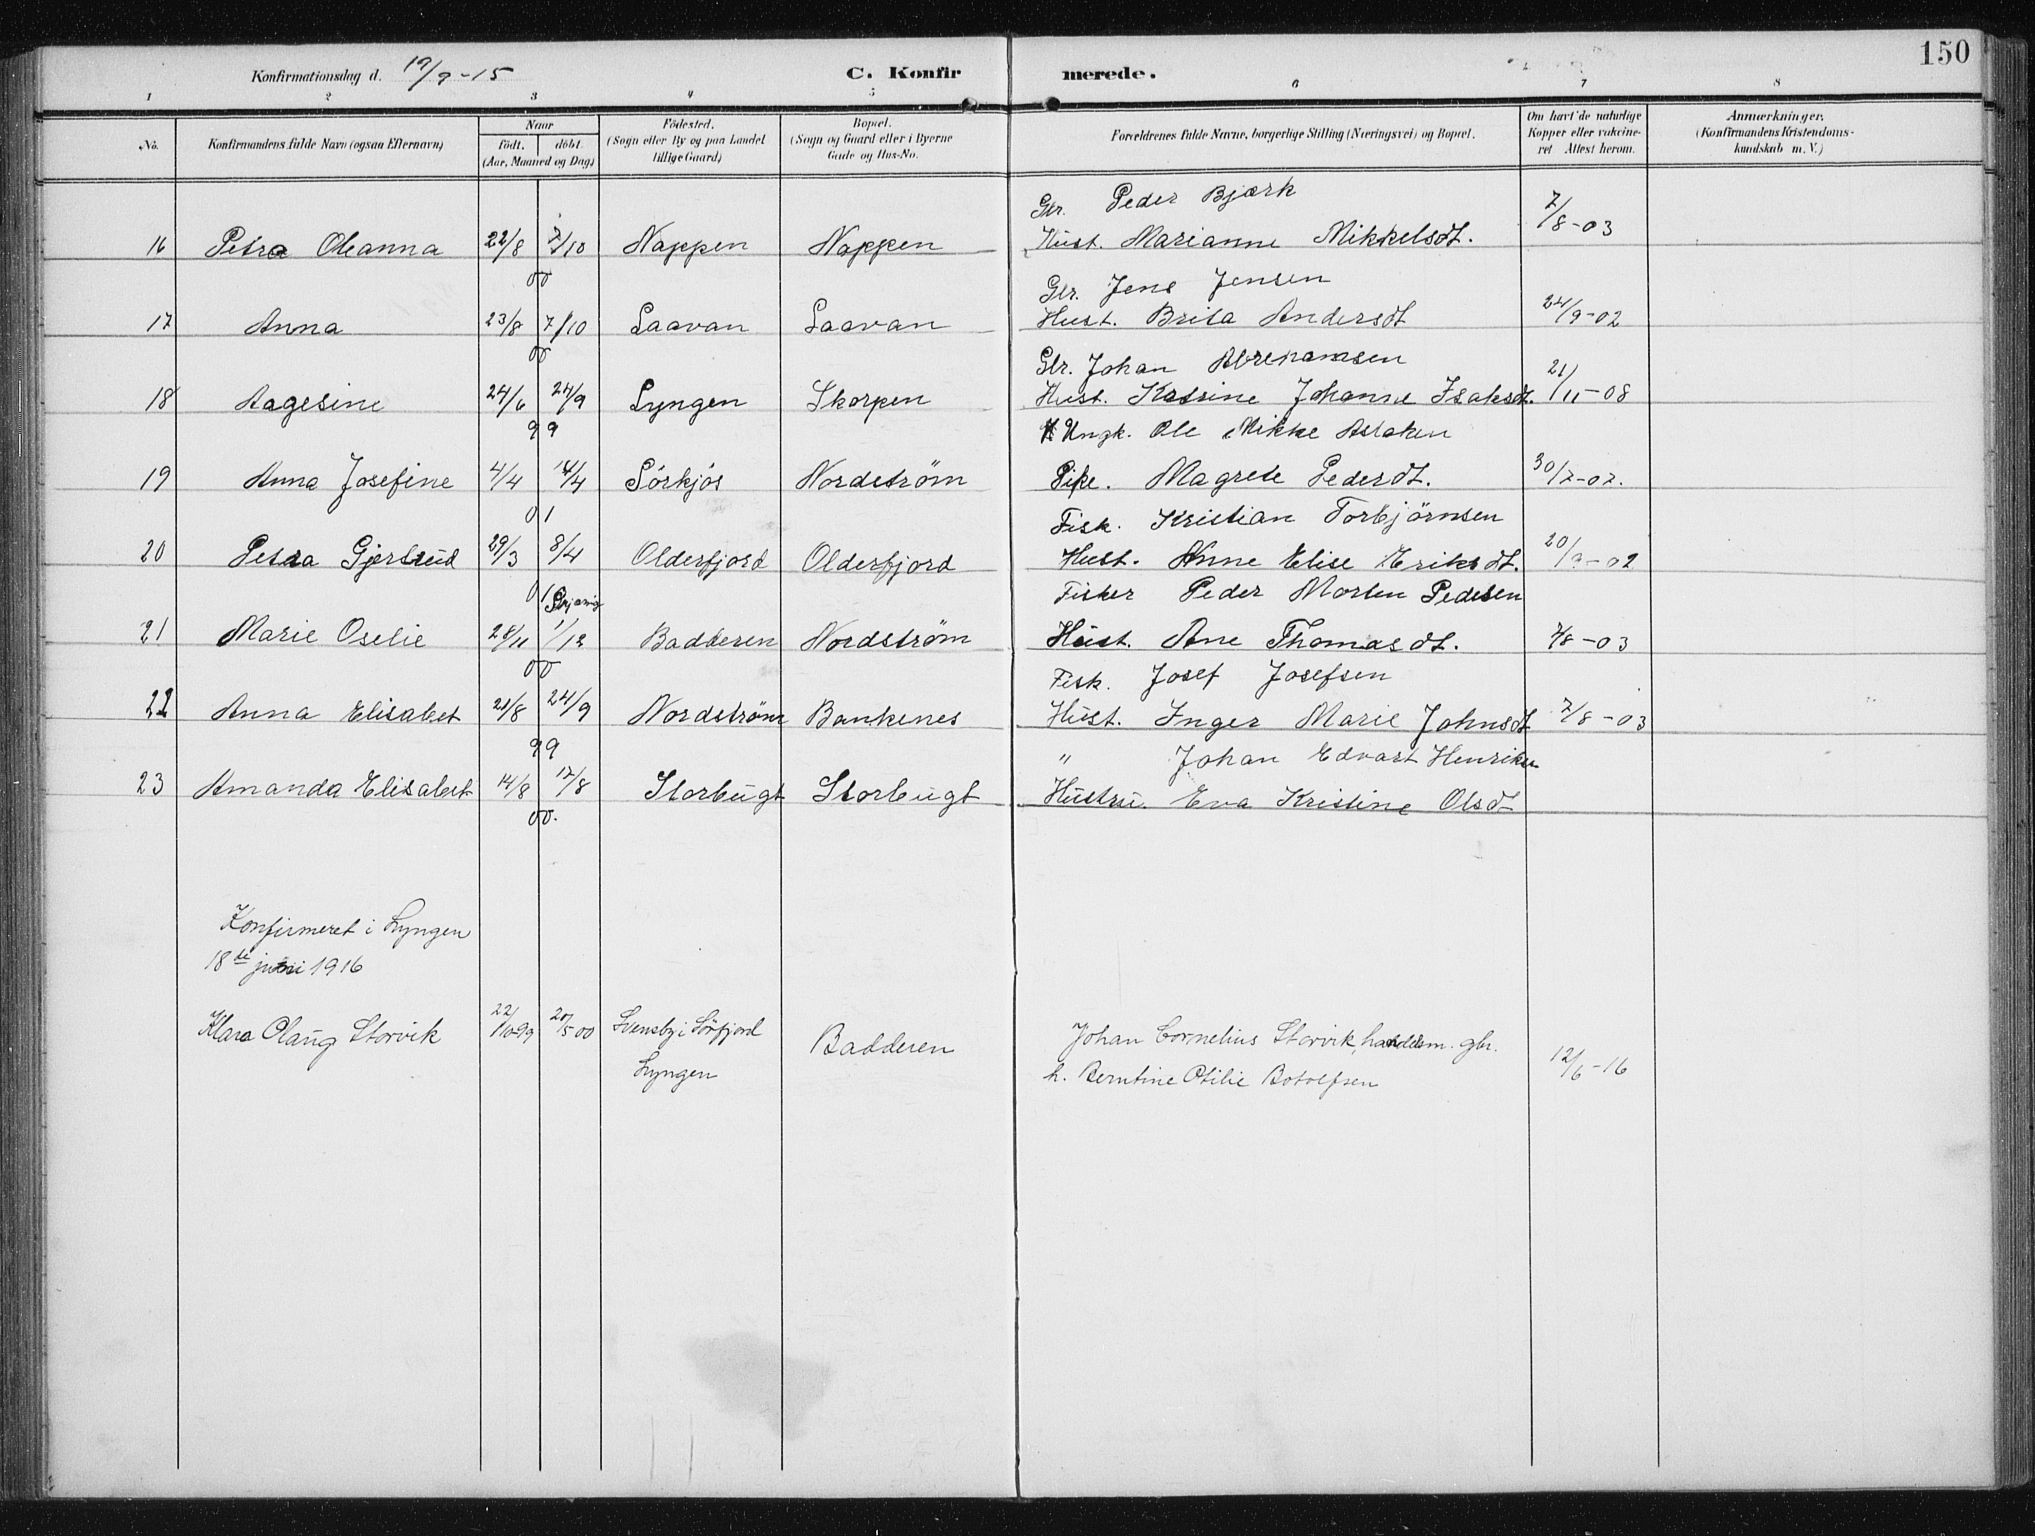 150
Konfirmationsdag d. 19/9-15 C. Konfirmerede.
1 2 3 4 5 6 7 8
No. Konfirmandens fulde Navn (ogsaa Efternavn) Naar födt. döbt. (Aar, Maaned og Dag) Födested. (Sogn eller By og paa Landet tillige Gaard) Bopæl. (Sogn og Gaard eller i Byerne Gade og Hus-No. Forældrenes fulde Navne, borgerlige Stilling (Næringsvei) og Bopæl. Om havt de naturlige Kopper eller vakcineret Attest herom. Anmærkninger. (Konfirmandens Kristendomskundskab m. V.)
Gbr. Peder Bjørk
16 Petra Oleanna 22/8 7/10 Nappen Nappen Hust. Marianne Mikkelsdt. 7/8-03
00
Gbr. Jens Jensen
17 Anna 23/8 7/10 Laavan Laavan Hust. Brita Andersdt 24/9-02
00
Gbr. Johan Abrehamsen
18 Aagesine 24/6 24/9 Lyngen Skorpen Hust. Katrine Johanne Isaksdt. 21/11-08
99
Ungk. Ole Mikke Aslaken
19 Anna Josefine 4/4 14/4 Sörkjös Nordström Pike. Magrete Pedersdt. 30/7-02.
01
Fisk. Kristian Torbjörnsen
20 Petra Gjertrud 29/3 8/4 Olderfjord Olderfjord Hust. Anne Elise Eriksdt. 20/9-02
01
Fisker Peder Morten Pedesen
21 Marie Oselie 28/11 1/12 Badderen Nordström Hust. Ane Thomasdt. 7/8-03
00
Fisk. Josef Josefsen
22 Anna Elisabet 21/8 24/9 Nordström Bankenes Hust. Inger Marie Johnsdt 7/8-03
99
" Johan Edvart Henriksen
23 Amanda Elisabet 14/8 17/8 Storbugt Storbugt Hustru Eva Kristine Olsdt
00.
Konfirmeret i Lyngen
18de juni 1916
Klara Olaug Storvik 22/10 99 20/5 00 Svensby i Sörfjord Badderen Johan Cornelius Storvik, handelsm. gbr.
Lyngen h. Berntine Otilie Botolfsen 12/6-16